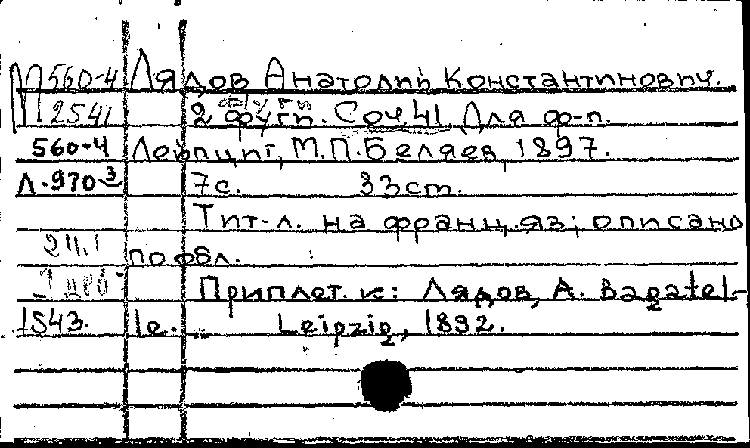 560-4 Лядов Анатолий Константинович.
2541 2 фуги. Соч. 41. Для ф-п.
560-4 Лейпциг, М.П. Беляев, 1897.
Л-970-3 7с. 33cm.
Тит-л. на франц. яз; описано
по обл.
Приплет. к: Лядов, А. Bagatel-
1543. le. Leipzig, 1892.